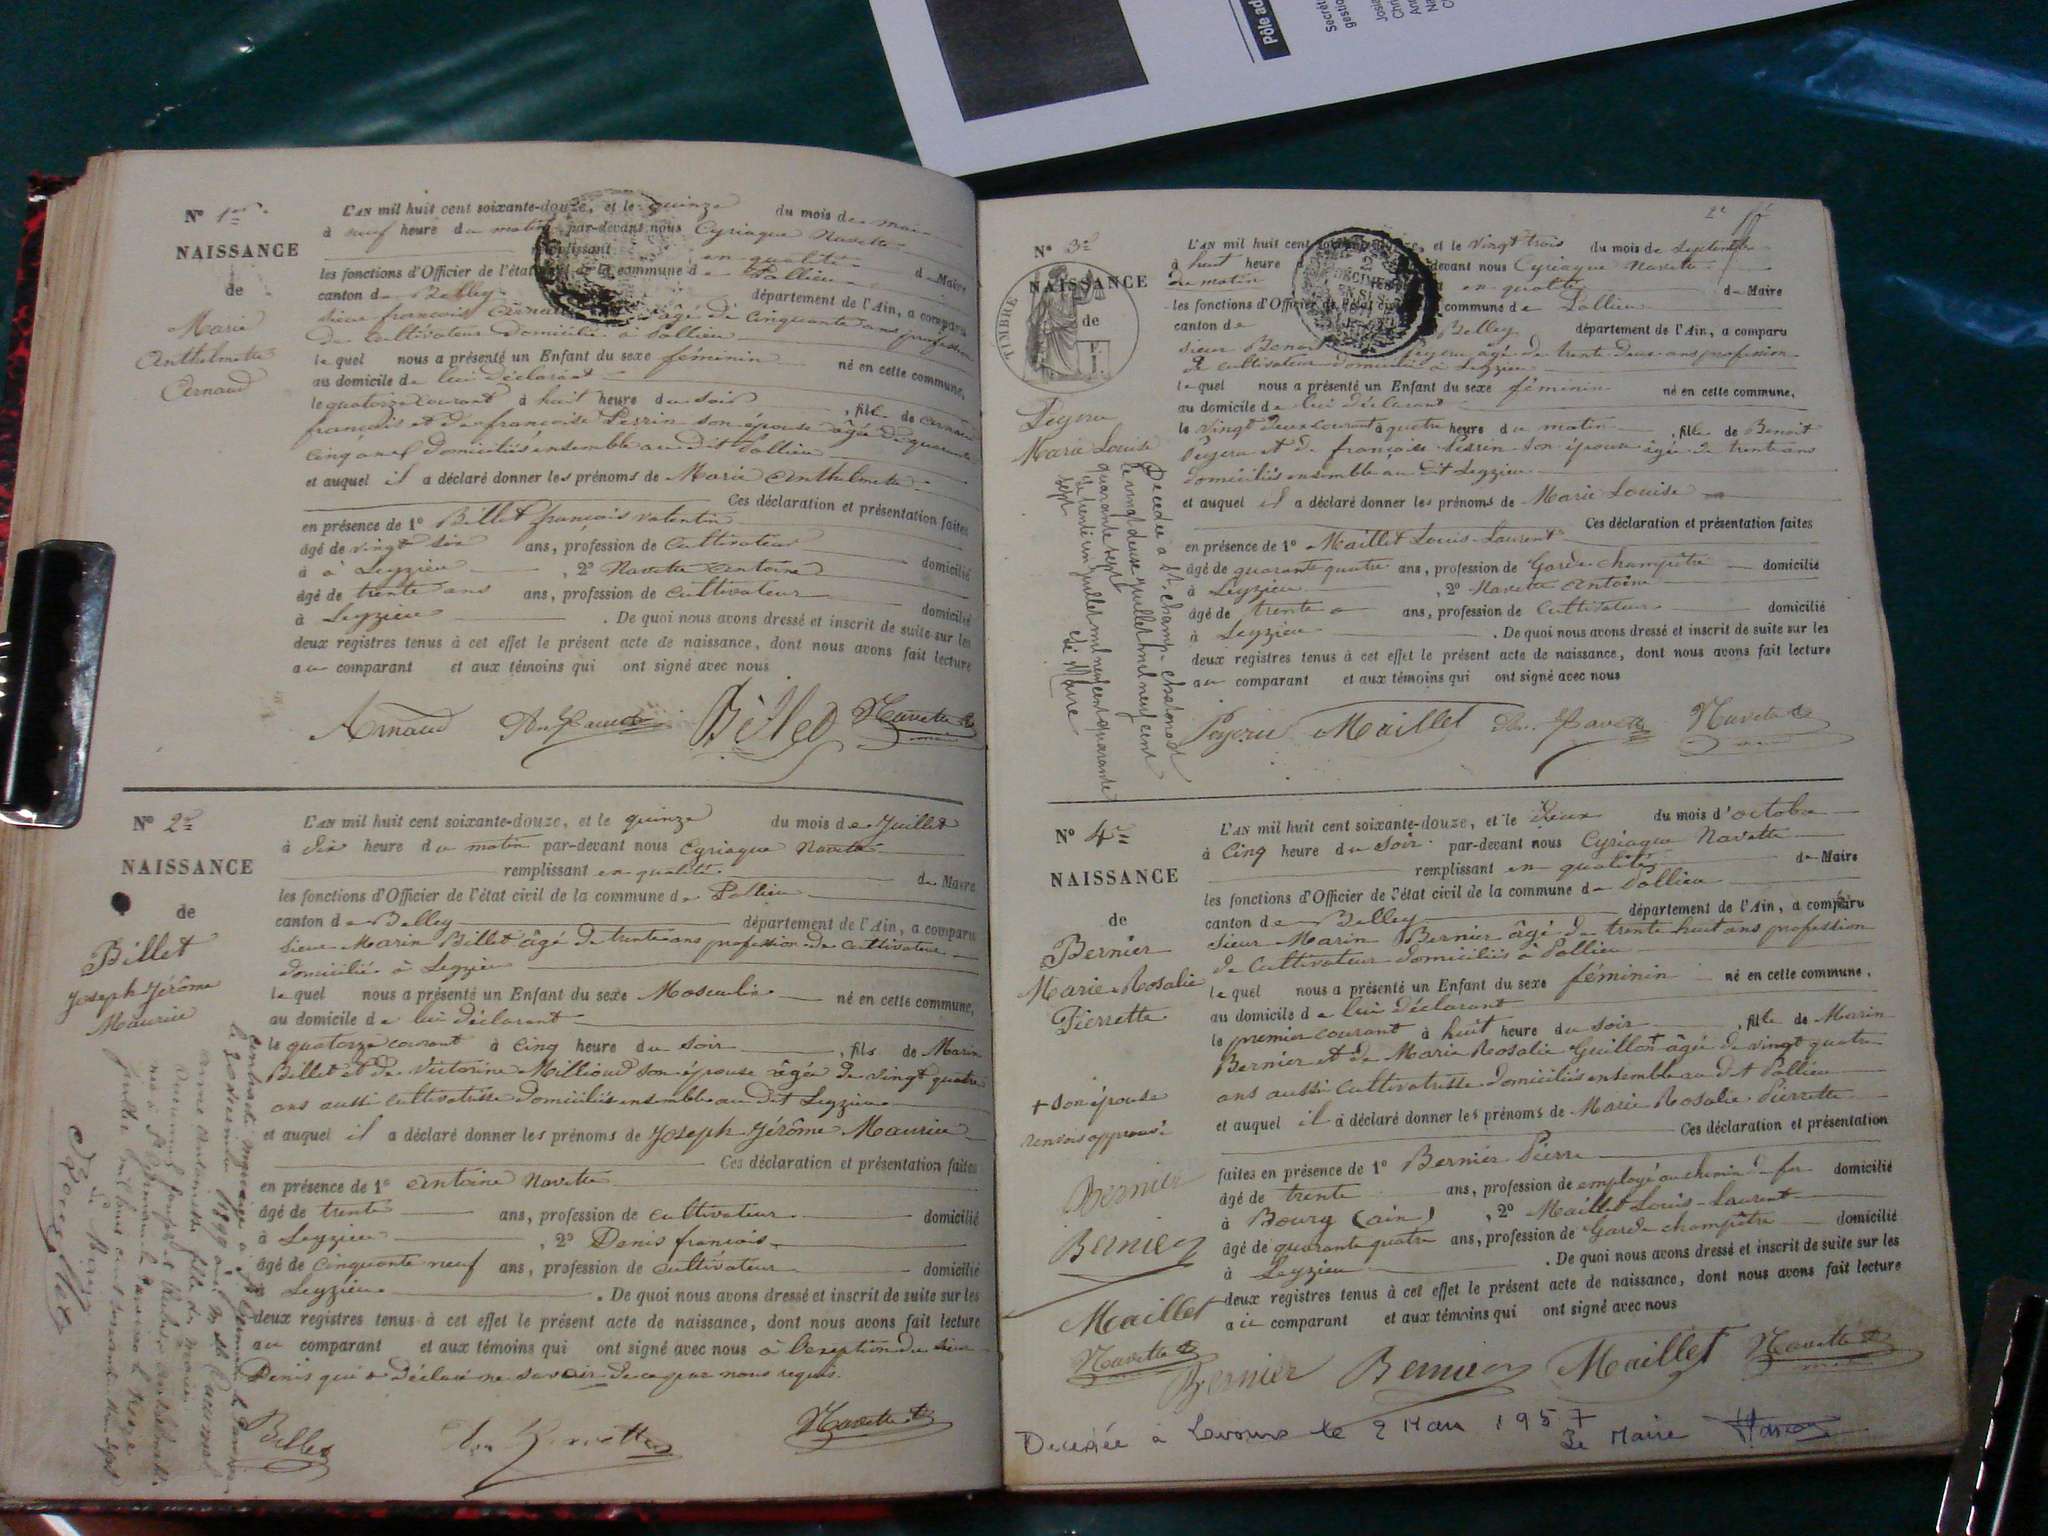 Pôle ad
N° 1er
NAISSANCE
de
Marie
Anthelmette
Arnaud
L'AN mil huit cent soixante-douze, et le quinze du mois de mai
à neuf heure du matin par-devant nous Cyriaque Navette
remplissant en qualité de Maire
les fonctions d'Officier de l'état civil de la commune de Pollieu
canton de Belley département de l'Ain, a comparu
sieur françois Arnaud âgé de cinquante ans profession
de cultivateur domicilié à Pollieu
lequel nous a présenté un Enfant du sexe féminin né en cette commune,
au domicile de lui déclarant
le quatorze courant à huit heure du soir, fille de Arnaud
françois et de françoise Perrin son épouse âgée de quarante
cinq ans domiciliés ensemble au dit Pollieu
et auquel il a déclaré donner les prénoms de Marie Anthelmette
Ces déclaration et présentation faites
en présence de 1° Billet françois valentin
âgé de vingt six ans, profession de cultivateur domicilié
à à Leyzieu, 2° Navette Antoine
âgé de trente ans ans, profession de cultivateur domicilié
à Leyzieu. De quoi nous avons dressé et inscrit de suite sur les
deux registres tenus à cet effet le présent acte de naissance, dont nous avons fait lecture
au comparant et aux témoins qui ont signé avec nous
Arnaud Billet Navette
N° 2e
NAISSANCE
de
Billet
Joseph Jérôme
Maurice
L'AN mil huit cent soixante-douze, et le quinze du mois de Juillet
à dix heure du matin par-devant nous Cyriaque Navette
remplissant en qualité de Maire
les fonctions d'Officier de l'état civil de la commune de Pollieu
canton de Belley département de l'Ain, a comparu
sieur Marin Billet âgé de trente ans profession de cultivateur
domicilié à Leyzieu
lequel nous a présenté un Enfant du sexe Masculin né en cette commune,
au domicile de lui déclarant
le quatorze courant à cinq heure du soir, fils de Marin
Billet et de Victorine Millioud son épouse âgée de vingt quatre
ans aussi cultivatrisse domiciliés ensemble au dit Leyzieu
et auquel il a déclaré donner les prénoms de Joseph Jérôme Maurice
Ces déclaration et présentation faites
en présence de 1° Antoine Navette
âgé de trente ans, profession de cultivateur domicilié
à Leyzieu, 2° Denis francois
âgé de cinquante neuf ans, profession de cultivateur domicilié
à Leyzieu. De quoi nous avons dressé et inscrit de suite sur les
deux registres tenus à cet effet le présent acte de naissance, dont nous avons fait lecture
au comparant et aux témoins qui ont signé avec nous à l'exseption du sieur
Denis qui a déclaré ne savoir de ce par nous requis.
Billet Navette
N° 3e
TIMBRE
NAISSANCE
de
Peyeru
Marie Louise
Décedée a St-champ-chatonod
le vingt deux juillet mil neuf cent
quarante sept
le trente un juillet mil neuf cent quarante
sept
Le Maire
L'AN mil huit cent soixante-douze, et le vingt trois du mois de Septembre
à huit heure devant nous Cyriaque Navette
du matin en qualité de Maire
les fonctions d'Officier de l'état civil commune de Pollieu
canton de Belley département de l'Ain, a comparu
sieur Benoit Peyeru âgé de trente deux ans profession
de cultivateur domicilié à Leyzieu
lequel nous a présenté un Enfant du sexe féminin né en cette commune,
au domicile de lui déclarant
le vingt deux courant à quatre heure du matin, fille de Benoit
Peyeru et de françoise Perrin son épouse âgée de trente ans
domiciliés ensemble au dit Leyzieu
et auquel il a déclaré donner les prénoms de Marie Louise
Ces déclaration et présentation faites
en présence de 1° Maillet Louis-Laurent
âgé de quarante quatre ans, profession de Garde champêtre domicilié
à Leyzieu, 2° Navette Antoine
âgé de trente ans, profession de Cultivateur domicilié
à Leyzieu. De quoi nous avons dressé et inscrit de suite sur les
deux registres tenus à cet effet le présent acte de naissance, dont nous avons fait lecture
au comparant et aux témoins qui ont signé avec nous
Peyeru Maillet Navette
N° 4e
NAISSANCE
de
Bernier
Marie Rosalie
Pierrette
+ son épouse
renvois approuvé
Bernier
Bernier
Maillet
Navette
L'AN mil huit cent soixante-douze, et le deux du mois d'octobre
à cinq heure du soir par-devant nous Cyriaque Navette
remplissant en qualité de Maire
les fonctions d'Officier de l'état civil de la commune de Pollieu
canton de Belley département de l'Ain, a comparu
sieur Marin Bernier âgé de trente huit ans profession
de Cultivateur domicilié à Pollieu
lequel nous a présenté un Enfant du sexe féminin né en cette commune,
au domicile de lui déclarant
le premier courant à huit heure du soir, fille de Marin
Bernier et de Marie Rosalie Guillot + âgée de vingt quatre
ans aussi cultivatrisse domiciliés ensemble au dit Pollieu
et auquel il a déclaré donner les prénoms de Marie Rosalie Pierrette
Ces déclaration et présentation
faites en présence de 1° Bernier Pierre
âgé de trente ans, profession de employé au chemin de fer domicilié
à Bourg (ain), 2° Maillet Louis-Laurent
âgé de quarante quatre ans, profession de Garde champêtre domicilié
à Leyzieu. De quoi nous avons dressé et inscrit de suite sur les
deux registres tenus à cet effet le présent acte de naissance, dont nous avons fait lecture
au comparant et aux témoins qui ont signé avec nous
Bernier Bernier Maillet Navette
Decedée à Lavours le 2 Mai 1957
Le Maire